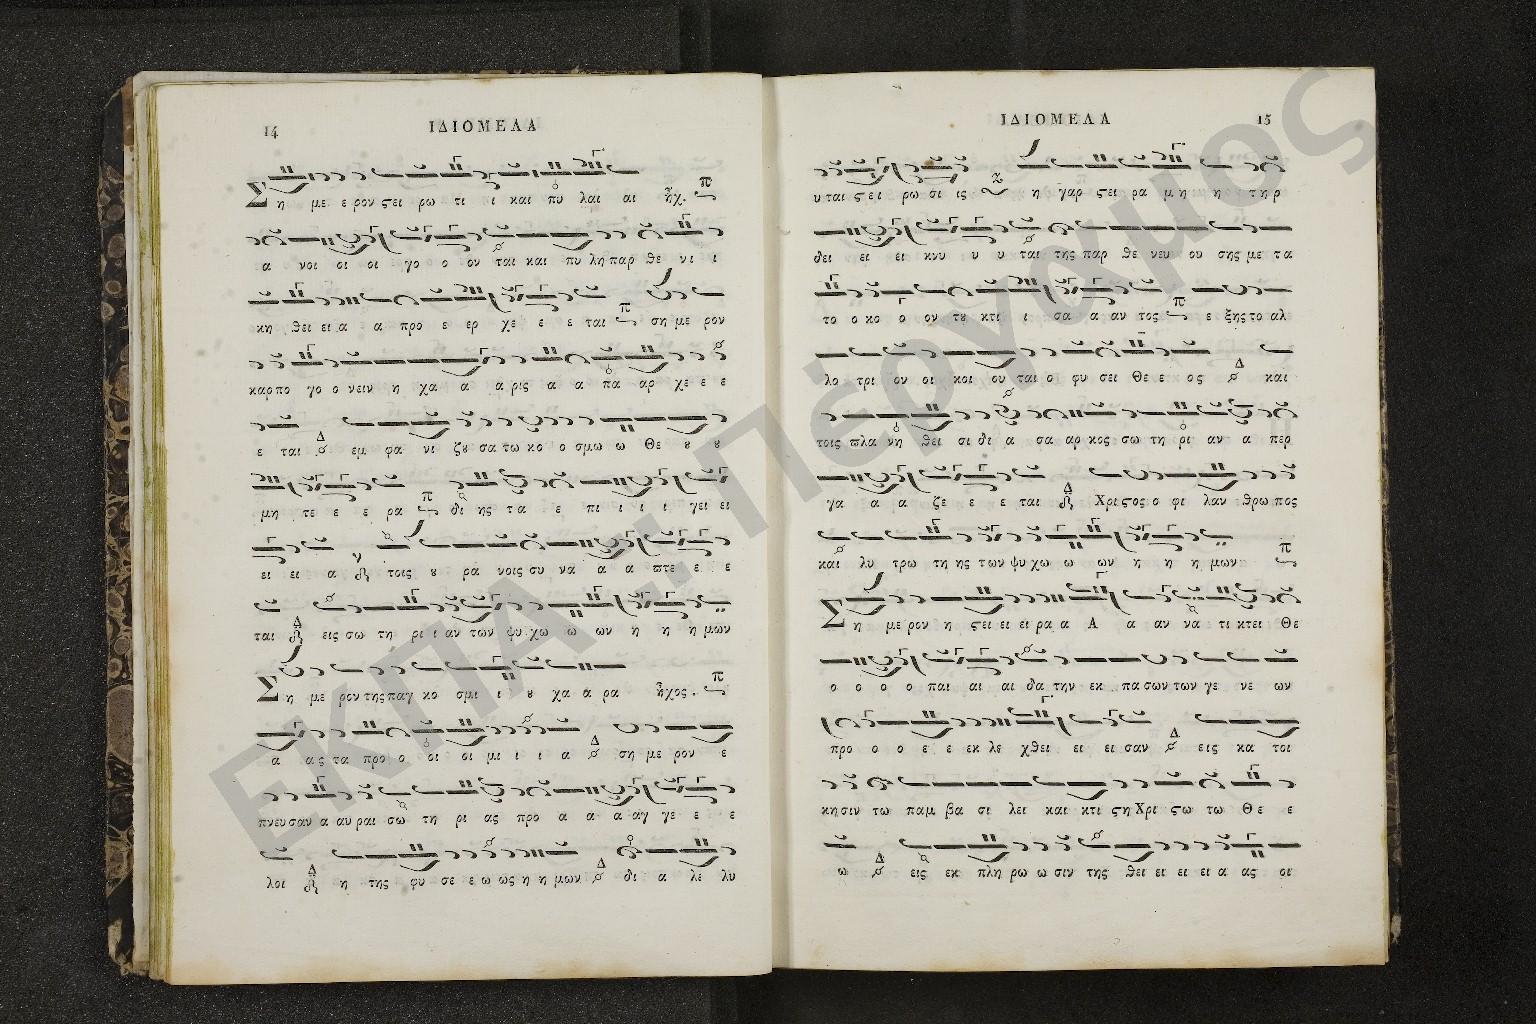 14 ΙΔΙΟΜΕΛΑ
Ση με ε ρον ϛει ρω τι ι και πυ λαι αι ἦχ. π
α νοι οι οι γο ο ον ται και πυ λη παρ θε νι ι
κη θει ει α α προ ε ερ χε ε ε ται π ση με ρον
καρπο γο ο νειν η χα α α ρις α α πα αρ χε ε ε
ε ται Δ εμ φα νι ζȣ σα τω κο ο σμω ω Θε ȣ ȣ
μη τε ε ε ρα π δι ης τα ε πι ι ι ι γει ει
ει ει α τοις ȣ ρα νοις συ να α α πτε ε ε
ται Δ εις σω τη ρι ι αν των ψυ χω ω ων η η η μων
Ση με ρον της παγ κο σμι ι ȣ χα α ρα ἦχος. π
α ας τα προ ο οι οι μι ι ι α Δ ση με ρον ε
πνευσαν α αυ ραι σω τη ρι ας προ α α α αγ γε ε ε
λοι Δ η της φυ σε ε ω ως η η μων Δ δι α λε λυ
ΙΔΙΟΜΕΛΑ 15
υ ται ϛ ει ρω σι ις η γαρ ϛει ρα μη η τηρ
δει ει ει κνυ υ υ ται της παρ θε νευ ου σης με τα
το ο κο ο ον τȣ κτι ι σα α αν τος π ε ξης το αλ
λο τρι ον οι κοι ου ται ο φυ σει Θε ε ος Δ και
τοις πλα νη θει σι δι α σα αρ κος σω τη ρι αν α περ
γα α α ζε ε ε ται Δ Χρι ϛος ο φι λαν θρω πος
και λυ τρω τη ης των ψυ χω ω ων η η η μων π
Ση με ρον η ϛει ει ει ρα α Α α αν να τι κτει Θε
ο ο ο ο παι αι αι δα την εκ πα σων των γε νε ων
προ ο ο ε ε εκ λε χθει ει ει σαν Δ εις κα τοι
κη σιν τω παμ βα σι λει και κτι ϛη Χρι ϛω τω Θε ε
ω Δ εις εκ πλη ρω ω σιν της θει ει ει ει α ας οι
ΕΚΠΑ.: Πέργαμος